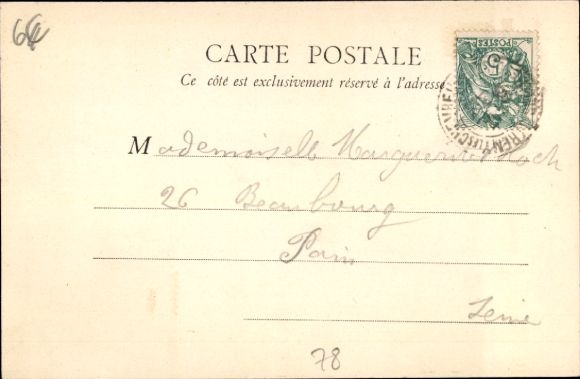 6€
CARTE POSTALE
Ce côté est exclusivement réservé à l'adresse
POSTES
Mademoiselle Marguerite Koch
26 Beaubourg
Paris
Seine
78